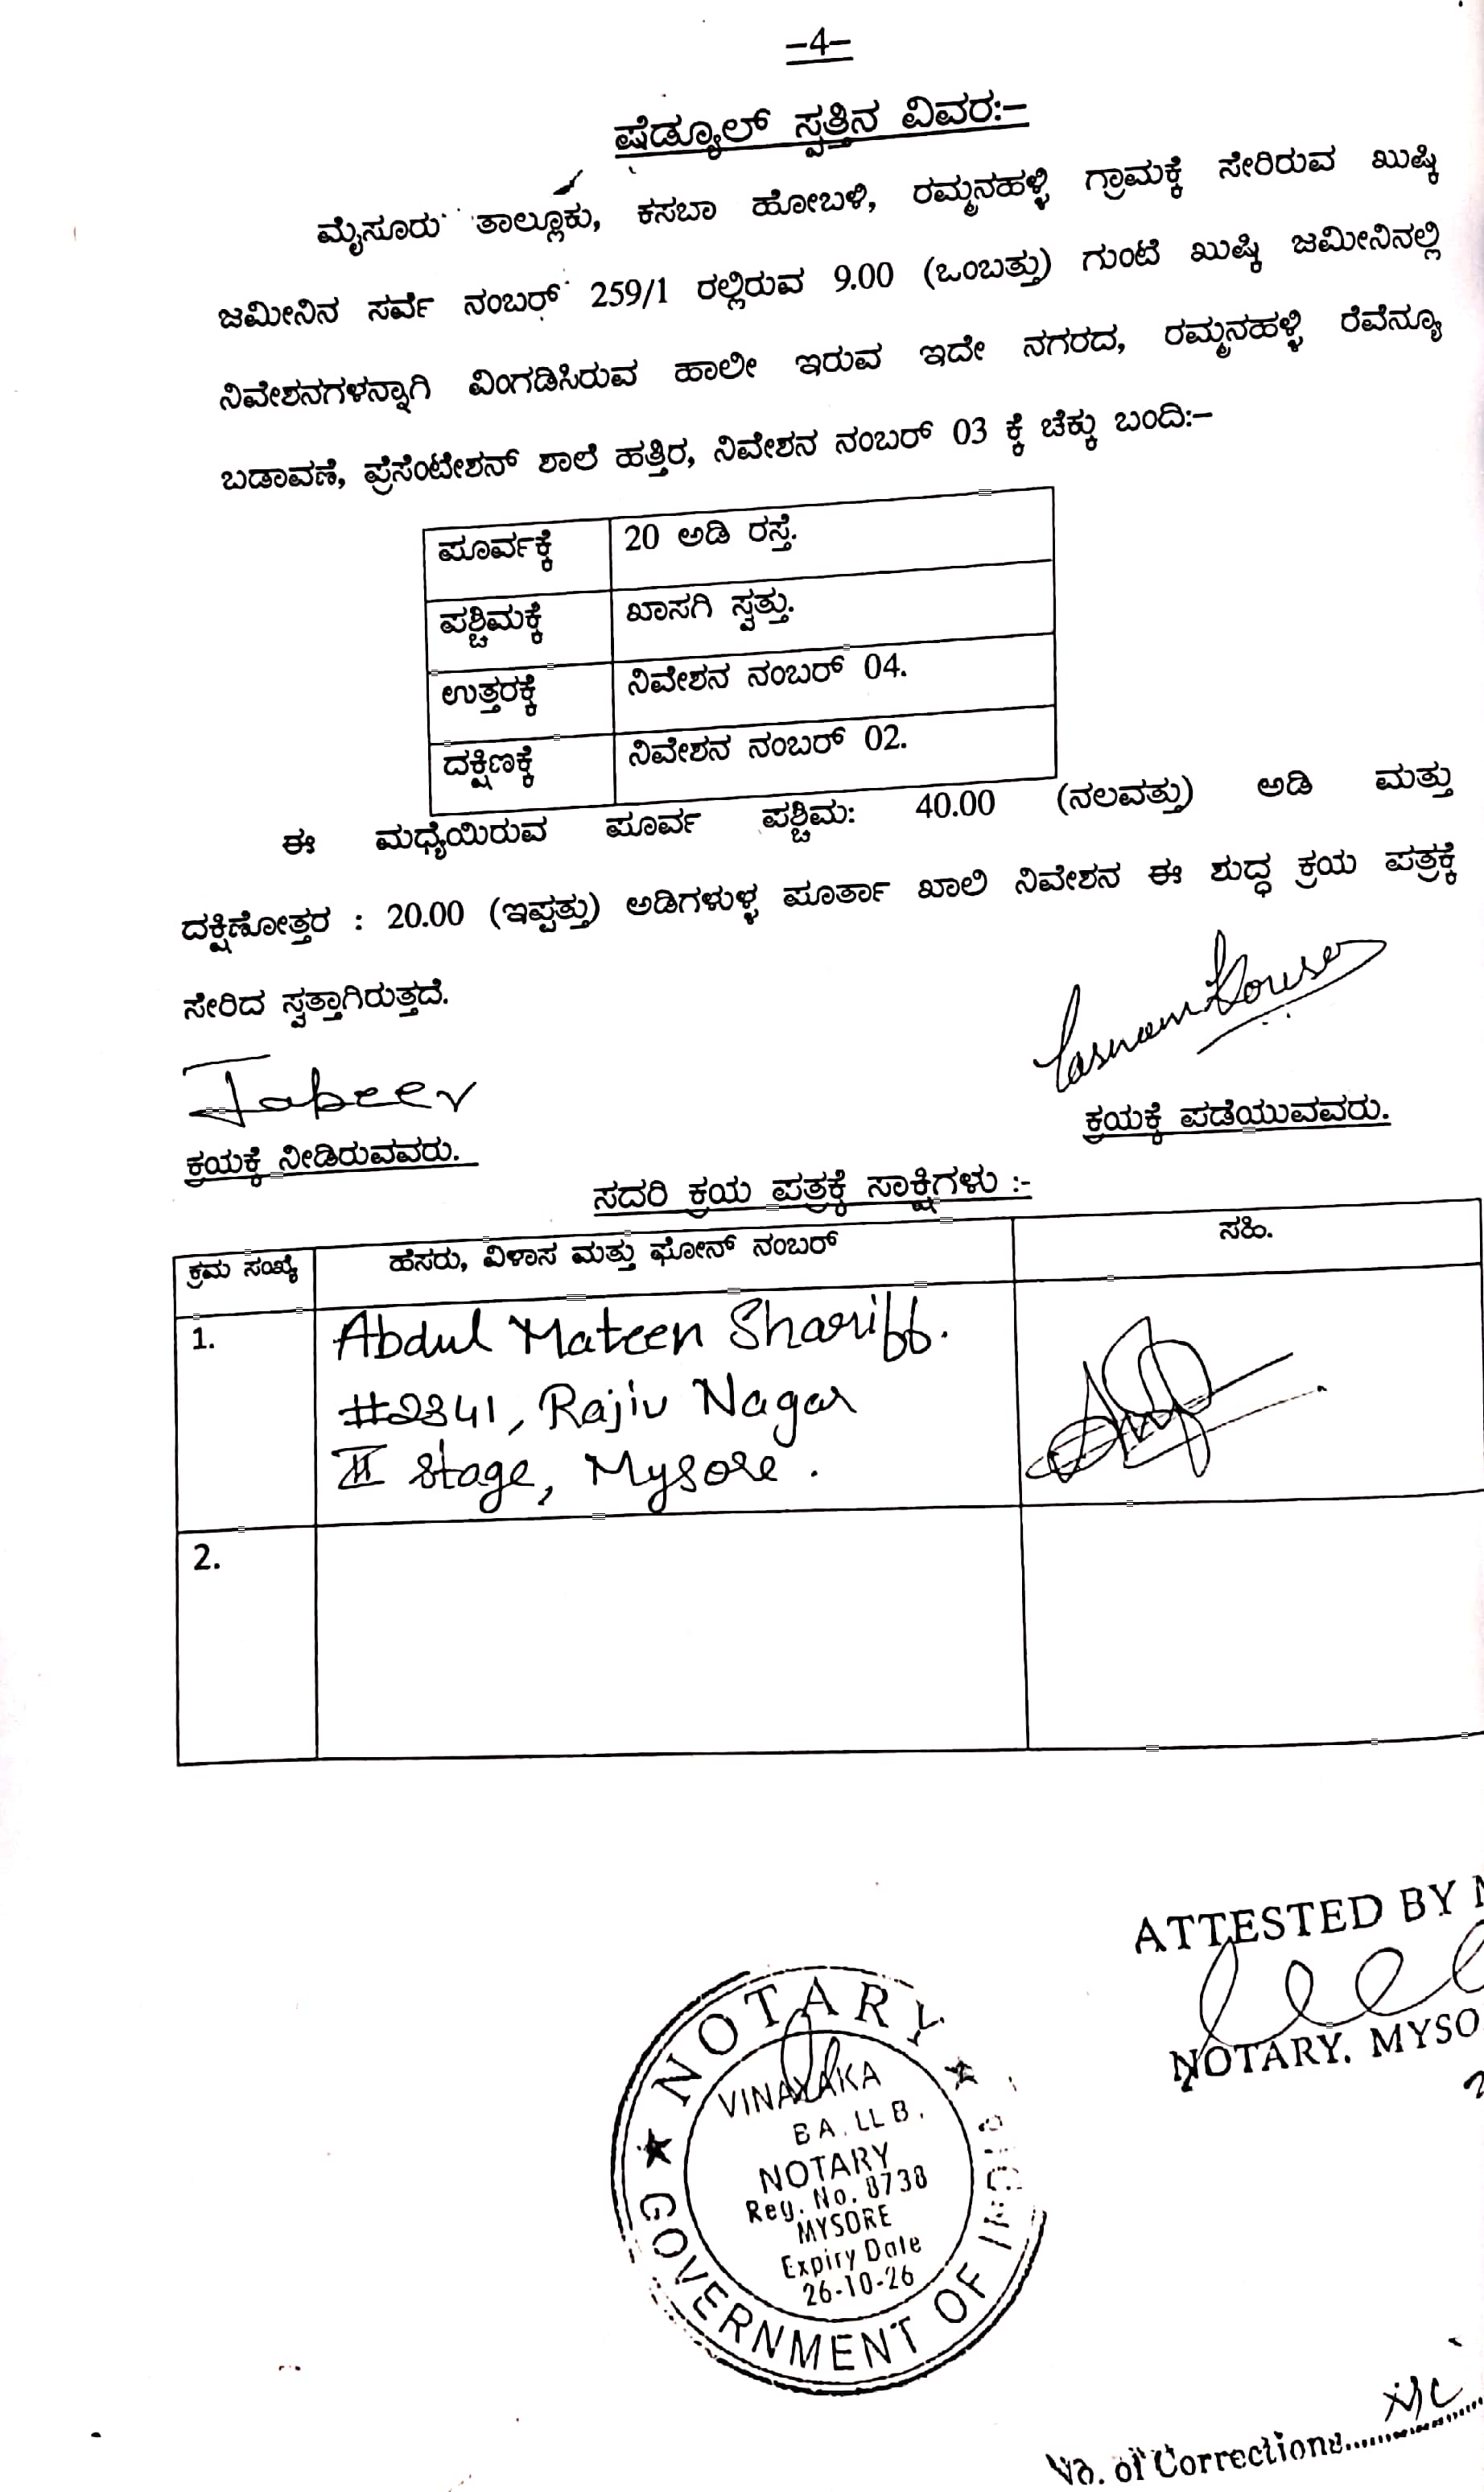 –4–
ಷೆಡ್ಯೂಲ್ ಸ್ವತ್ತಿನ ವಿವರ:–
ಮೈಸೂರು ತಾಲ್ಲೂಕು, ಕಸಬಾ ಹೋಬಳಿ, ರಮ್ಮನಹಳ್ಳಿ ಗ್ರಾಮಕ್ಕೆ ಸೇರಿರುವ ಖುಷ್ಕಿ
ಜಮೀನಿನ ಸರ್ವೆ ನಂಬರ್ 259/1 ರಲ್ಲಿರುವ 9.00 (ಒಂಬತ್ತು) ಗುಂಟೆ ಖುಷ್ಕಿ ಜಮೀನಿನಲ್ಲಿ
ನಿವೇಶನಗಳನ್ನಾಗಿ ವಿಂಗಡಿಸಿರುವ ಹಾಲೀ ಇರುವ ಇದೇ ನಗರದ, ರಮ್ಮನಹಳ್ಳಿ ರೆವೆನ್ಯೂ
ಬಡಾವಣೆ, ಪ್ರೆಸೆಂಟೇಶನ್ ಶಾಲೆ ಹತ್ತಿರ, ನಿವೇಶನ ನಂಬರ್ 03 ಕ್ಕೆ ಚೆಕ್ಕು ಬಂದಿ:–
ಪೂರ್ವಕ್ಕೆ 20 ಅಡಿ ರಸ್ತೆ.
ಪಶ್ಚಿಮಕ್ಕೆ ಖಾಸಗಿ ಸ್ವತ್ತು.
ಉತ್ತರಕ್ಕೆ ನಿವೇಶನ ನಂಬರ್ 04.
ದಕ್ಷಿಣಕ್ಕೆ ನಿವೇಶನ ನಂಬರ್ 02.
ಈ ಮಧ್ಯೆಯಿರುವ ಪೂರ್ವ ಪಶ್ಚಿಮ: 40.00 (ನಲವತ್ತು) ಅಡಿ ಮತ್ತು
ದಕ್ಷಿಣೋತ್ತರ : 20.00 (ಇಪ್ಪತ್ತು) ಅಡಿಗಳುಳ್ಳ ಪೂರ್ತಾ ಖಾಲಿ ನಿವೇಶನ ಈ ಶುದ್ಧ ಕ್ರಯ ಪತ್ರಕ್ಕೆ
ಸೇರಿದ ಸ್ವತ್ತಾಗಿರುತ್ತದೆ.
Jabeer
ಕ್ರಯಕ್ಕೆ ನೀಡಿರುವವರು.
ಕ್ರಯಕ್ಕೆ ಪಡೆಯುವವರು.
ಸದರಿ ಕ್ರಯ ಪತ್ರಕ್ಕೆ ಸಾಕ್ಷಿಗಳು :-
ಕ್ರಮ ಸಂಖ್ಯೆ ಹೆಸರು, ವಿಳಾಸ ಮತ್ತು ಫೋನ್ ನಂಬರ್ ಸಹಿ.
1. Abdul Mateen Shariff.
#2341, Rajiv Nagar
II stage, Mysore.
2.
ATTESTED BY
NOTARY. MYSO
NOTARY
VINAYAKA
BA. LLB.
NOTARY
Reg. No. 8738
MYSORE
Expiry Date
26-10-26
GOVERNMENT OF
No. of Corrections..........